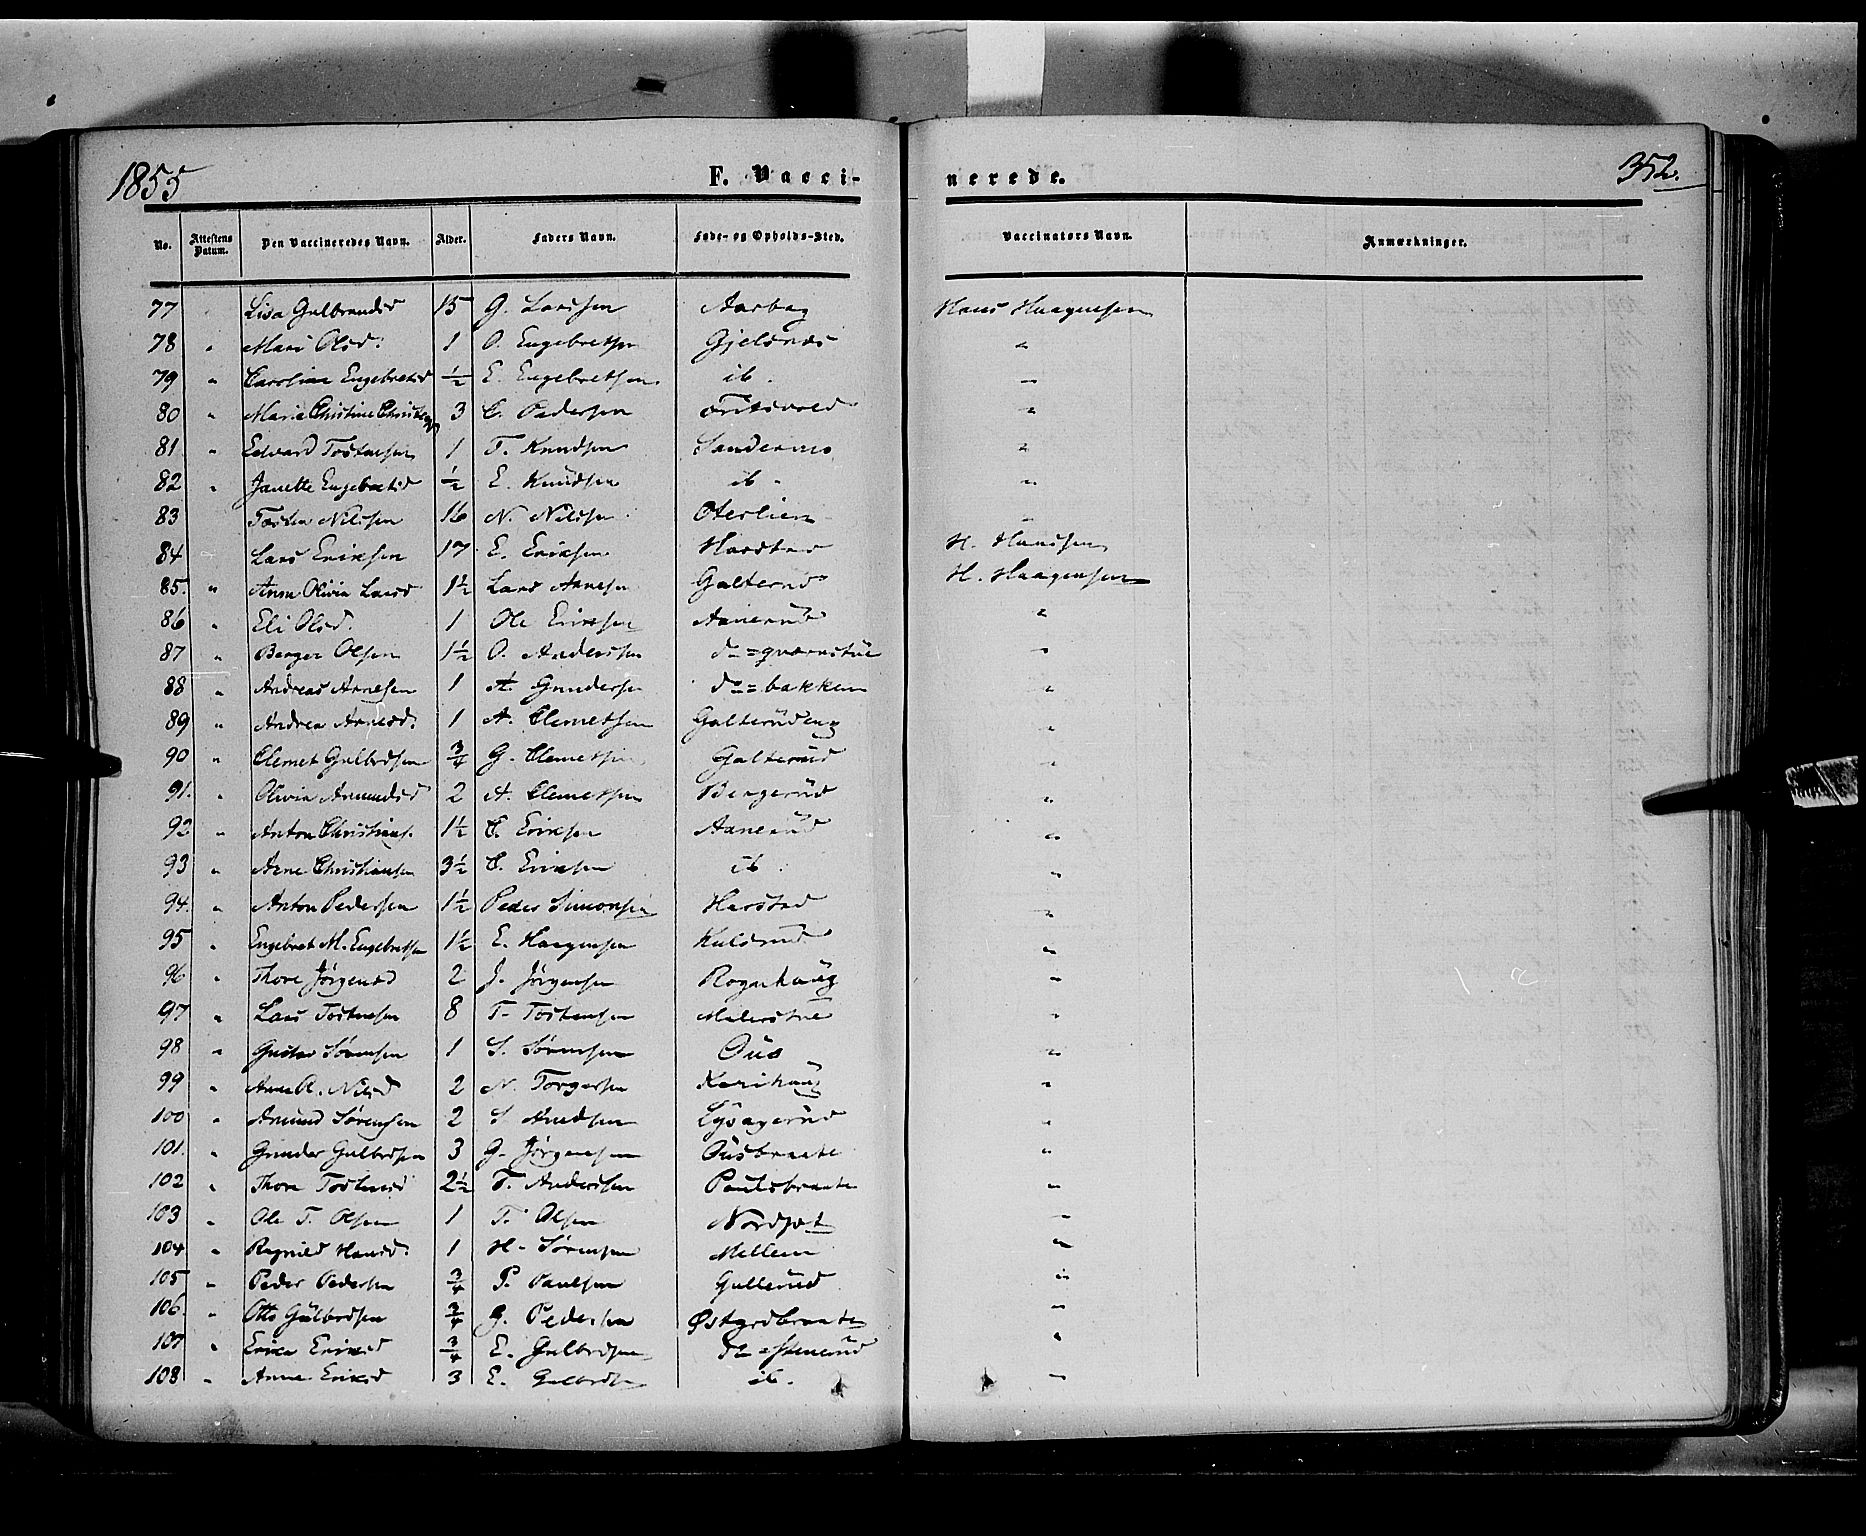 1855 F. Vacci- nerede. 352.
No. Attestens Datum. Den Vaccineredes Navn. Alder. Faders Navn. Føde- og Opholds-Sted. Vaccinators Navn. Anmærkninger.
77 Lisa Gulbrandsd 15 G. Larssen Aasbag Hans Haagensen
78 " Mari Olsd. 1 O. Engebretsen Gjelsnes "
79 " Caroline Engebretsd 1/2 E. Engebretsen ib. "
80 " Maria Christine 3 C. Pedersen "
81 " Edvard Tostensen 1 T. Knudsen Sandermo "
82 " Janette Engebretsd 1/2 E. Knudsen ib. "
83 Tosten Nilssen 16 N. Nilssen Oterlien "
84 Lars Eriksen 17 E. Eriksen Harstad H. Hanssen
85. " Anne Olivia Larsd 1 1/2 Lars Arnesen Galterud H. Haagensen
86 " Eli Olsd. 1 Ole Eriksen Aanerud "
87 " Berger Olsen 1 1/2 O. Anderssen d-=qværnstue "
88 " Andreas Arnesen 1 A. Gundersen d-=bakken "
89 " Andrea Arnesd. 1 A. Clemetsen Galterudeng "
90 " Clemet Gulbrdsen 3/4 G. Clemetsen Galterud "
91. " Olivia Amundsd 2 A. Clemetsen Bergerud "
92 " Anton Christians. 1 1/2 C. Eriksen Aanerud "
93 " Arne Christiansen 3 1/2 C. Eriksen ib. "
94. " Anton Pedersen 1 1/2 Peder Simonsen Harstad "
95 " Engebret M. Engebretsen 1 1/2 E. Haagensen Kulsrud "
96 " Thore Jørgensd 2 J. Jørgensen Rognhaug "
97 " Lars Tostensen 8 T. Tostensen Milerstue "
98 " Gustav Sørensen 1 S. Sørensen Ous "
99 " Anne A. Nilsd 2 N. Torgersen Karihaug "
100 " Amund Sørensen 2 S. Amdsen Lysagerud "
101. " Gunder Gulbrdsen 3 G. Jørgensen Ousbraate "
102 " Thore Tostensd 2 1/2 T. Anderssen Paulsbraate "
103 " Ole T. Olsen 1 T. Olsen Nordset "
104 " Ragnild Hansd. 1 H. Sørensen Mellem "
105 " Peder Pedersen 3/4 P. Paulsen Gullerud "
106. " Otto Gulbrdsen 3/4 G. Pedersen Østgrdbraate "
107 " Erica Eriksd 3/4 E. Gulbrdsen "
108 " Anne Eriksd 3 E. Gulbrdsn ib. "